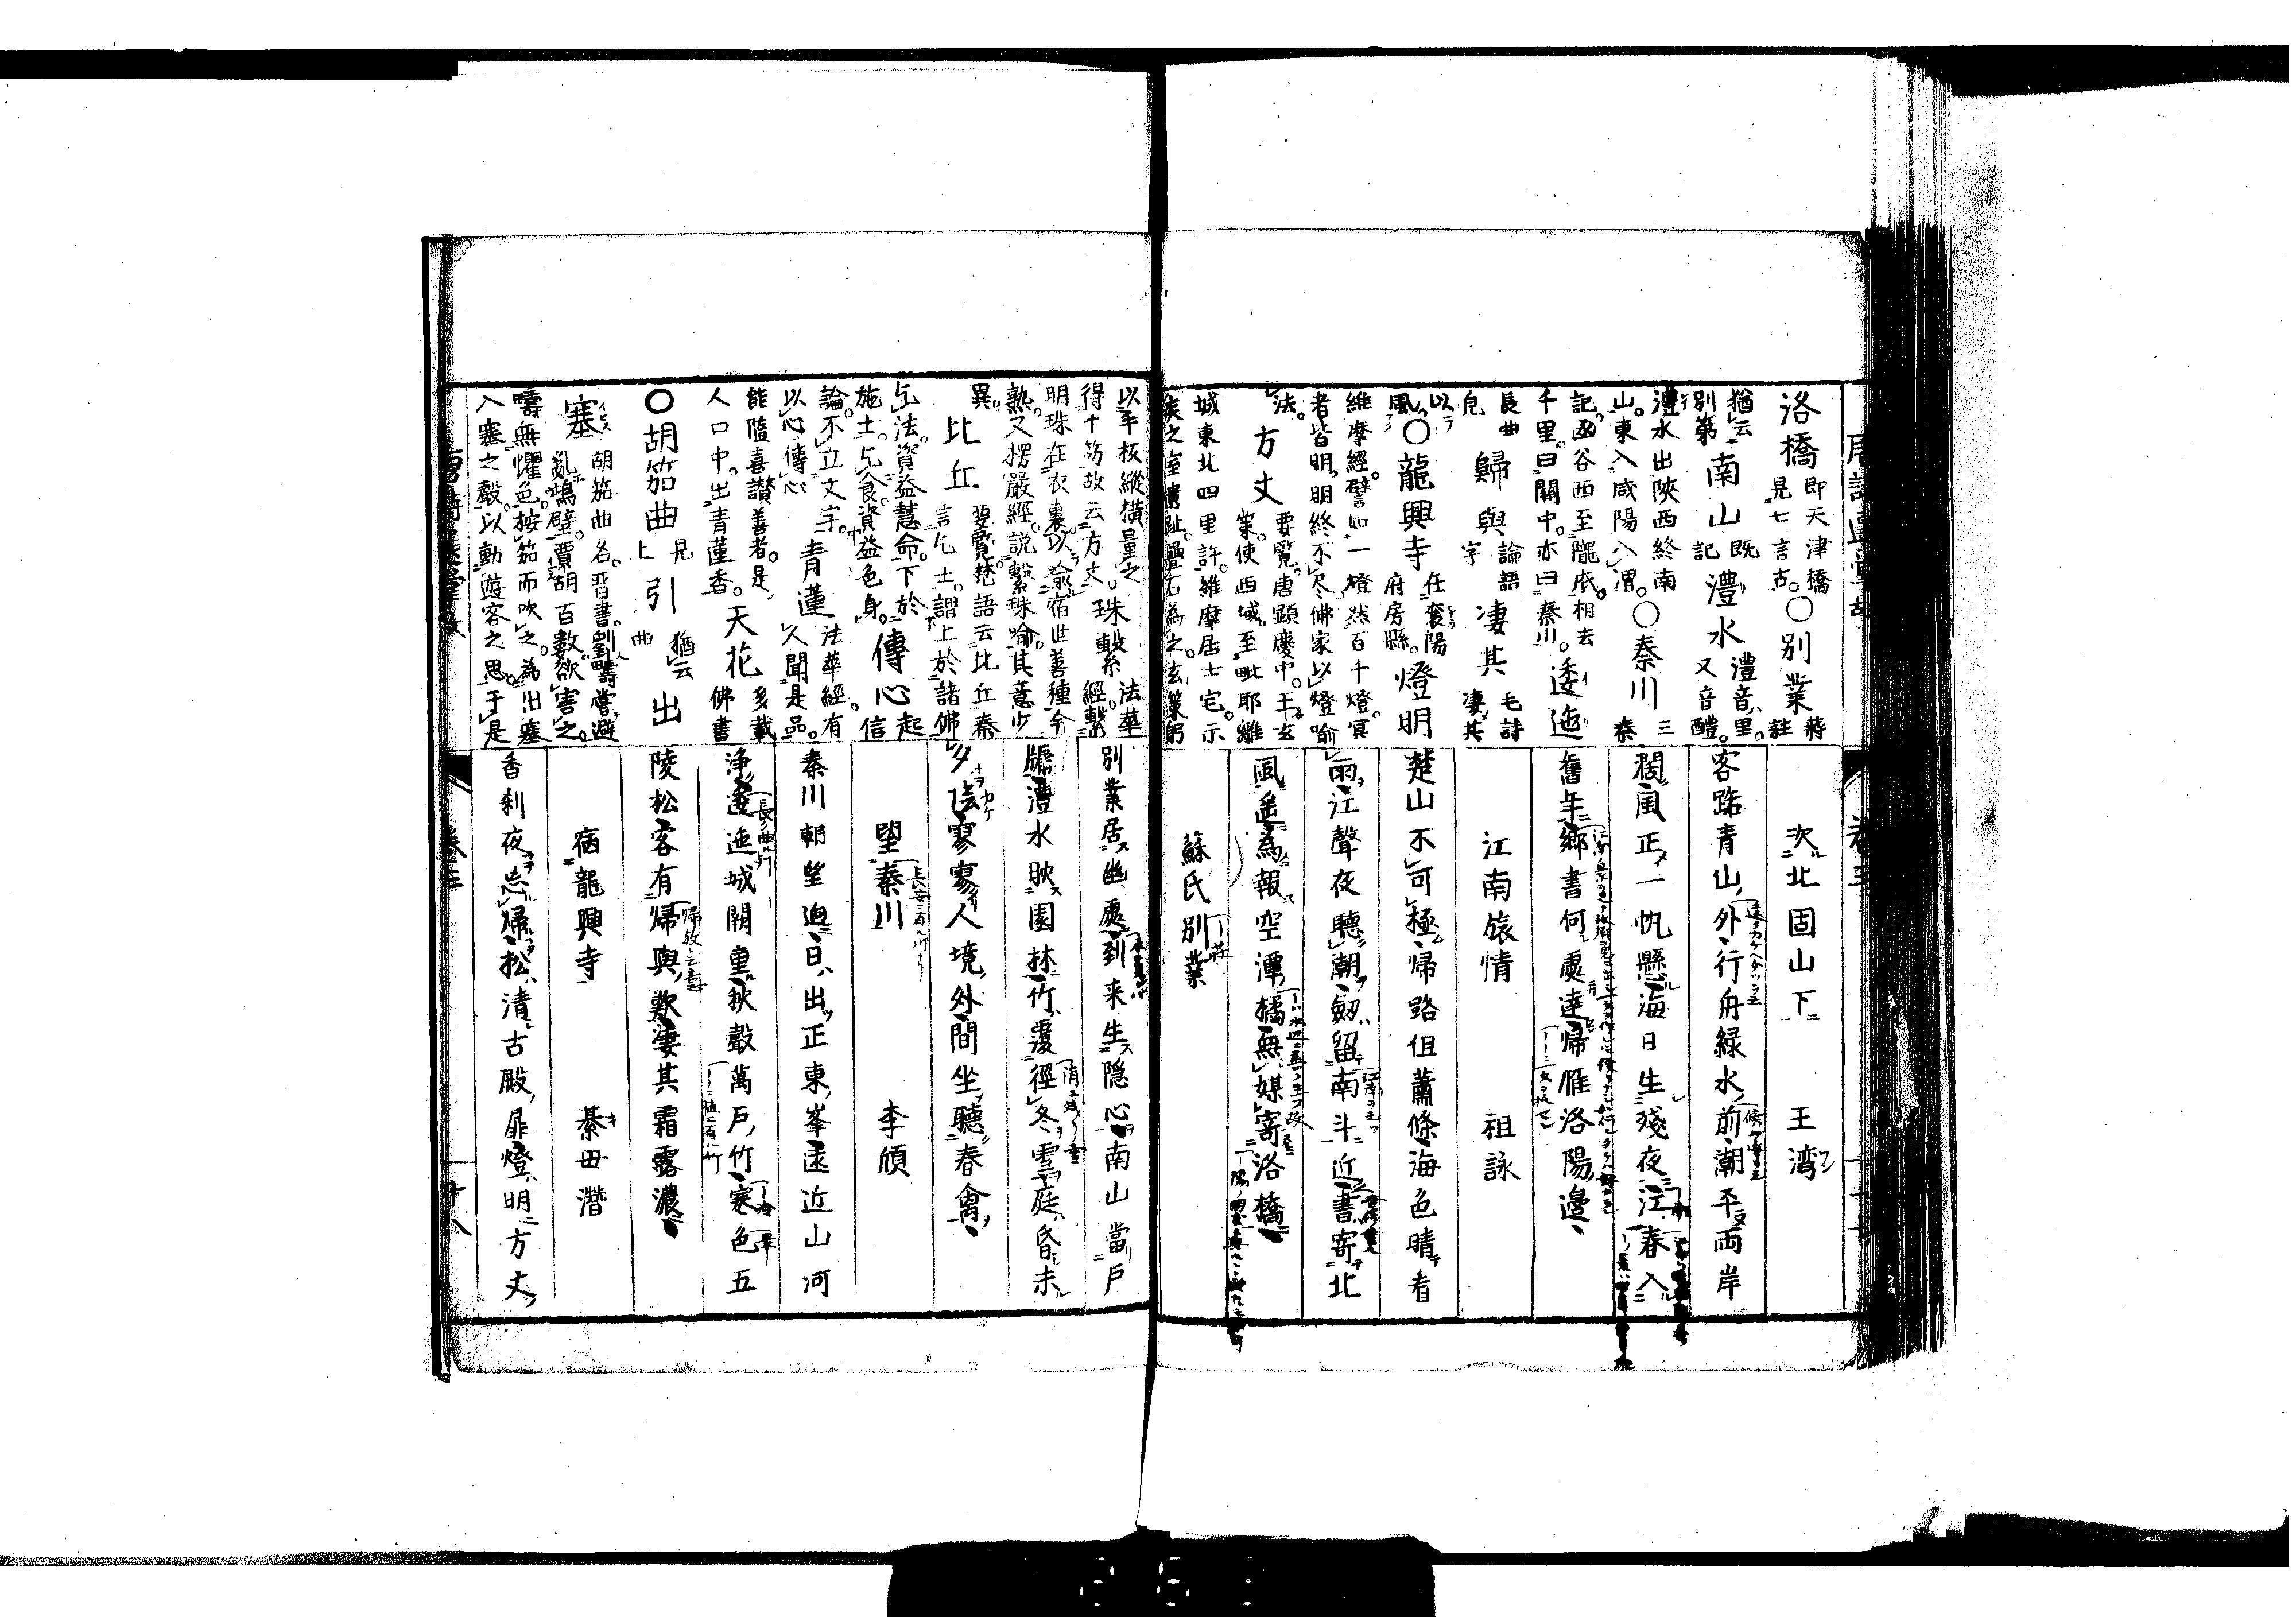 洛橋 即天津橋 見七言古。〇別業 蔣註
猶云別第 南山 既記 灃水 灃音里。又音醴。
灃水出陝西終南山。東入咸陽入渭。〇秦川 三秦
記。函谷西至隴底。相去千里。曰關中。亦曰秦川。逶迤
長曲皃 歸與 論語字 凄其 毛詩凄其
以風。〇龍興寺 在襄陽府房縣。燈明
維摩經。譬如一燈然百千燈。冥者皆明。明終不尽。佛家以燈喻
法。方丈 要覽。唐顯慶中。王玄策。使西域。至毗耶離
城東北四里許。維摩居士宅。示疾之室遺趾。疊石為之。玄策躬
次北固山下 王湾
客路青山外行舟緑水前潮平両岸
濶風正一帆懸海日生殘夜江春入
舊年郷書何處達歸雁洛陽邉
江南旅情 祖詠
楚山不可極歸路但蕭條海色晴看
雨江聲夜聽潮劔留南斗近書寄北
風遙為報空潭橘無媒寄洛橋
蘇氏別業
以手板縱橫量之得十笏故云方丈。珠繫 法華經。繫
明珠在衣裏。以喻宿世善種今熟。又楞嚴經。説繫珠喻。其意少
異。比丘 要覽。梵語云比丘秦言乞士。謂上於諸佛
乞法。資益慧命。下於施士。乞食。資益色身。傳心 起信
論。不立文字。以心傳心 青蓮 法華經。有人聞是品。
能隨喜讚善者。是人口中。出青蓮香。天花 多載佛書
〇胡笳曲 見上 引 猶云曲 出
塞 胡笳曲名。晋書。劉疇嘗避亂塢壁。賈胡百數欲害之。
疇無懼色。按笳而吹之。為出塞入塞之聲。以動遊客之思。于是
別業居幽處到来生隠心南山當戸
牖灃水映園林竹覆徑冬雪庭昏未
夕陰寥寥人境外間坐聽春禽
望秦川 李頎
秦川朝望迥日出正東峯遠近山河
浄逶迤城闕重秋聲萬戸竹寒色五
陵松客有歸與歎凄其霜露濃
宿龍興寺 綦毋潛
香刹夜忘歸松清古殿扉燈明方丈